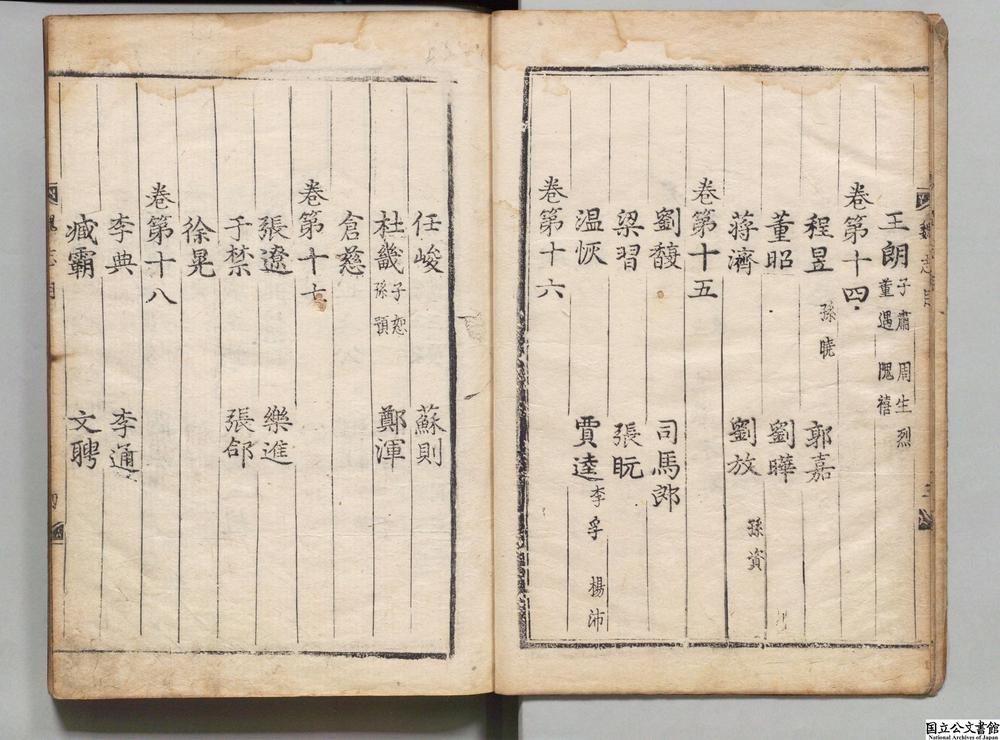 魏志目
王朗 子肅 周生烈
董遇 隗禧
卷第十四
程昱 孫曉 郭嘉
董昭 劉曄
蔣濟 劉放 孫資
卷第十五
劉馥 司馬郎
梁習 張
温恢 賈逵 李孚 楊沛
卷第十六
任峻 蘇則
杜畿 子恕 鄭渾
孫
倉慈
卷第十七
張遼 樂進
于禁 張郃
徐晃
卷第十八
李典 李通
臧霸 文聘
魏志目
国立公文書館
National Archives of Japan